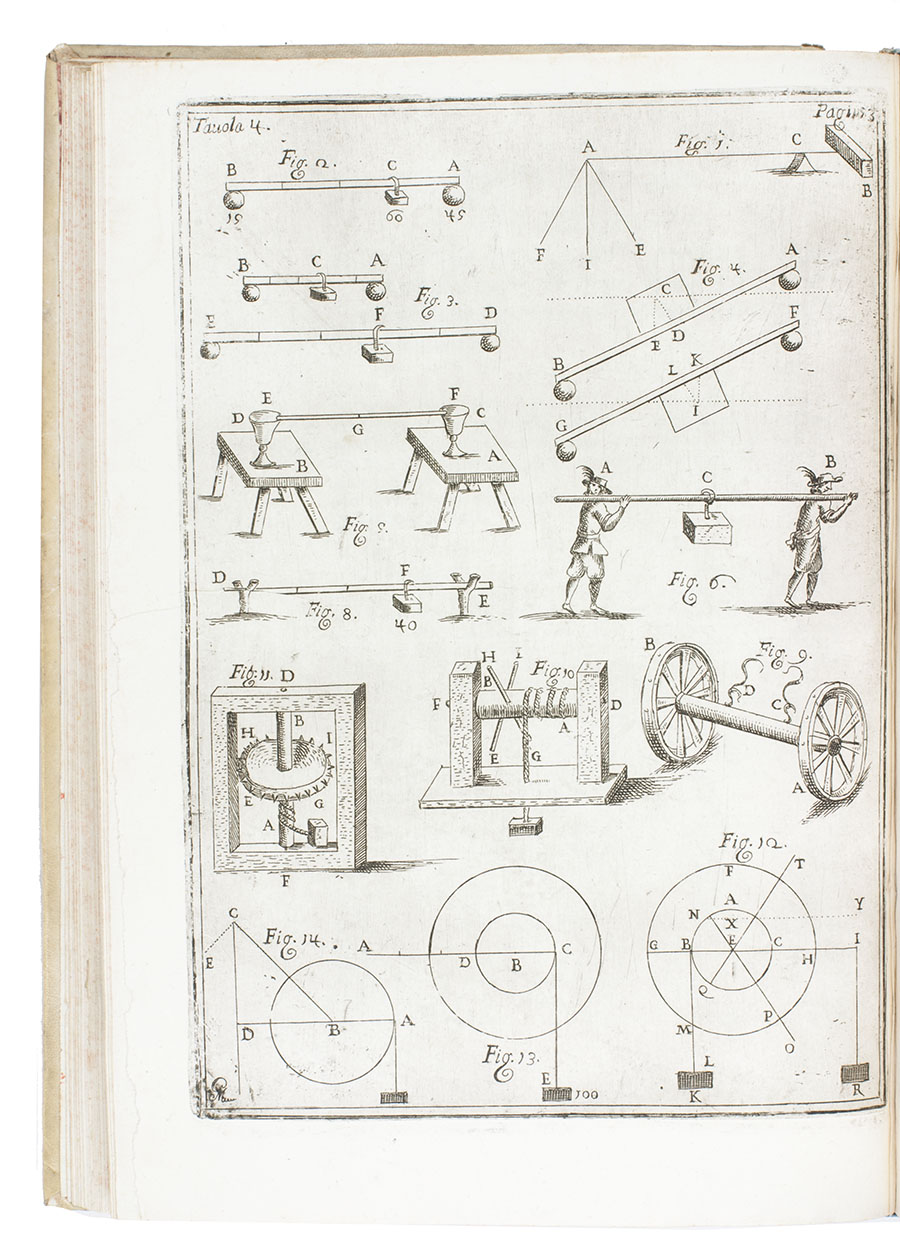 Tauola 4.
Fig. 2.
B C A
15 60 45
Fig. 1.
A C
B
F I E
B C A
Fig. 3.
E F D
Fig. 4.
A
C
E D
B
F
L K
I
G
D E F C
G
B A
A C B
Fig. 6.
D F
E
Fig. 8.
40
Fig. 11. D
B
H I
E G
A
F
H I
Fig. 10
B
F D
A
E G
Fig. 9.
B
D
C
A
C
Fig. 14.
E
D B A
A
D B C
Fig. 13.
E
100
Fig. 12.
F T
A
N Y
X
G B E C I
H
Q
P
M
O
L
K R